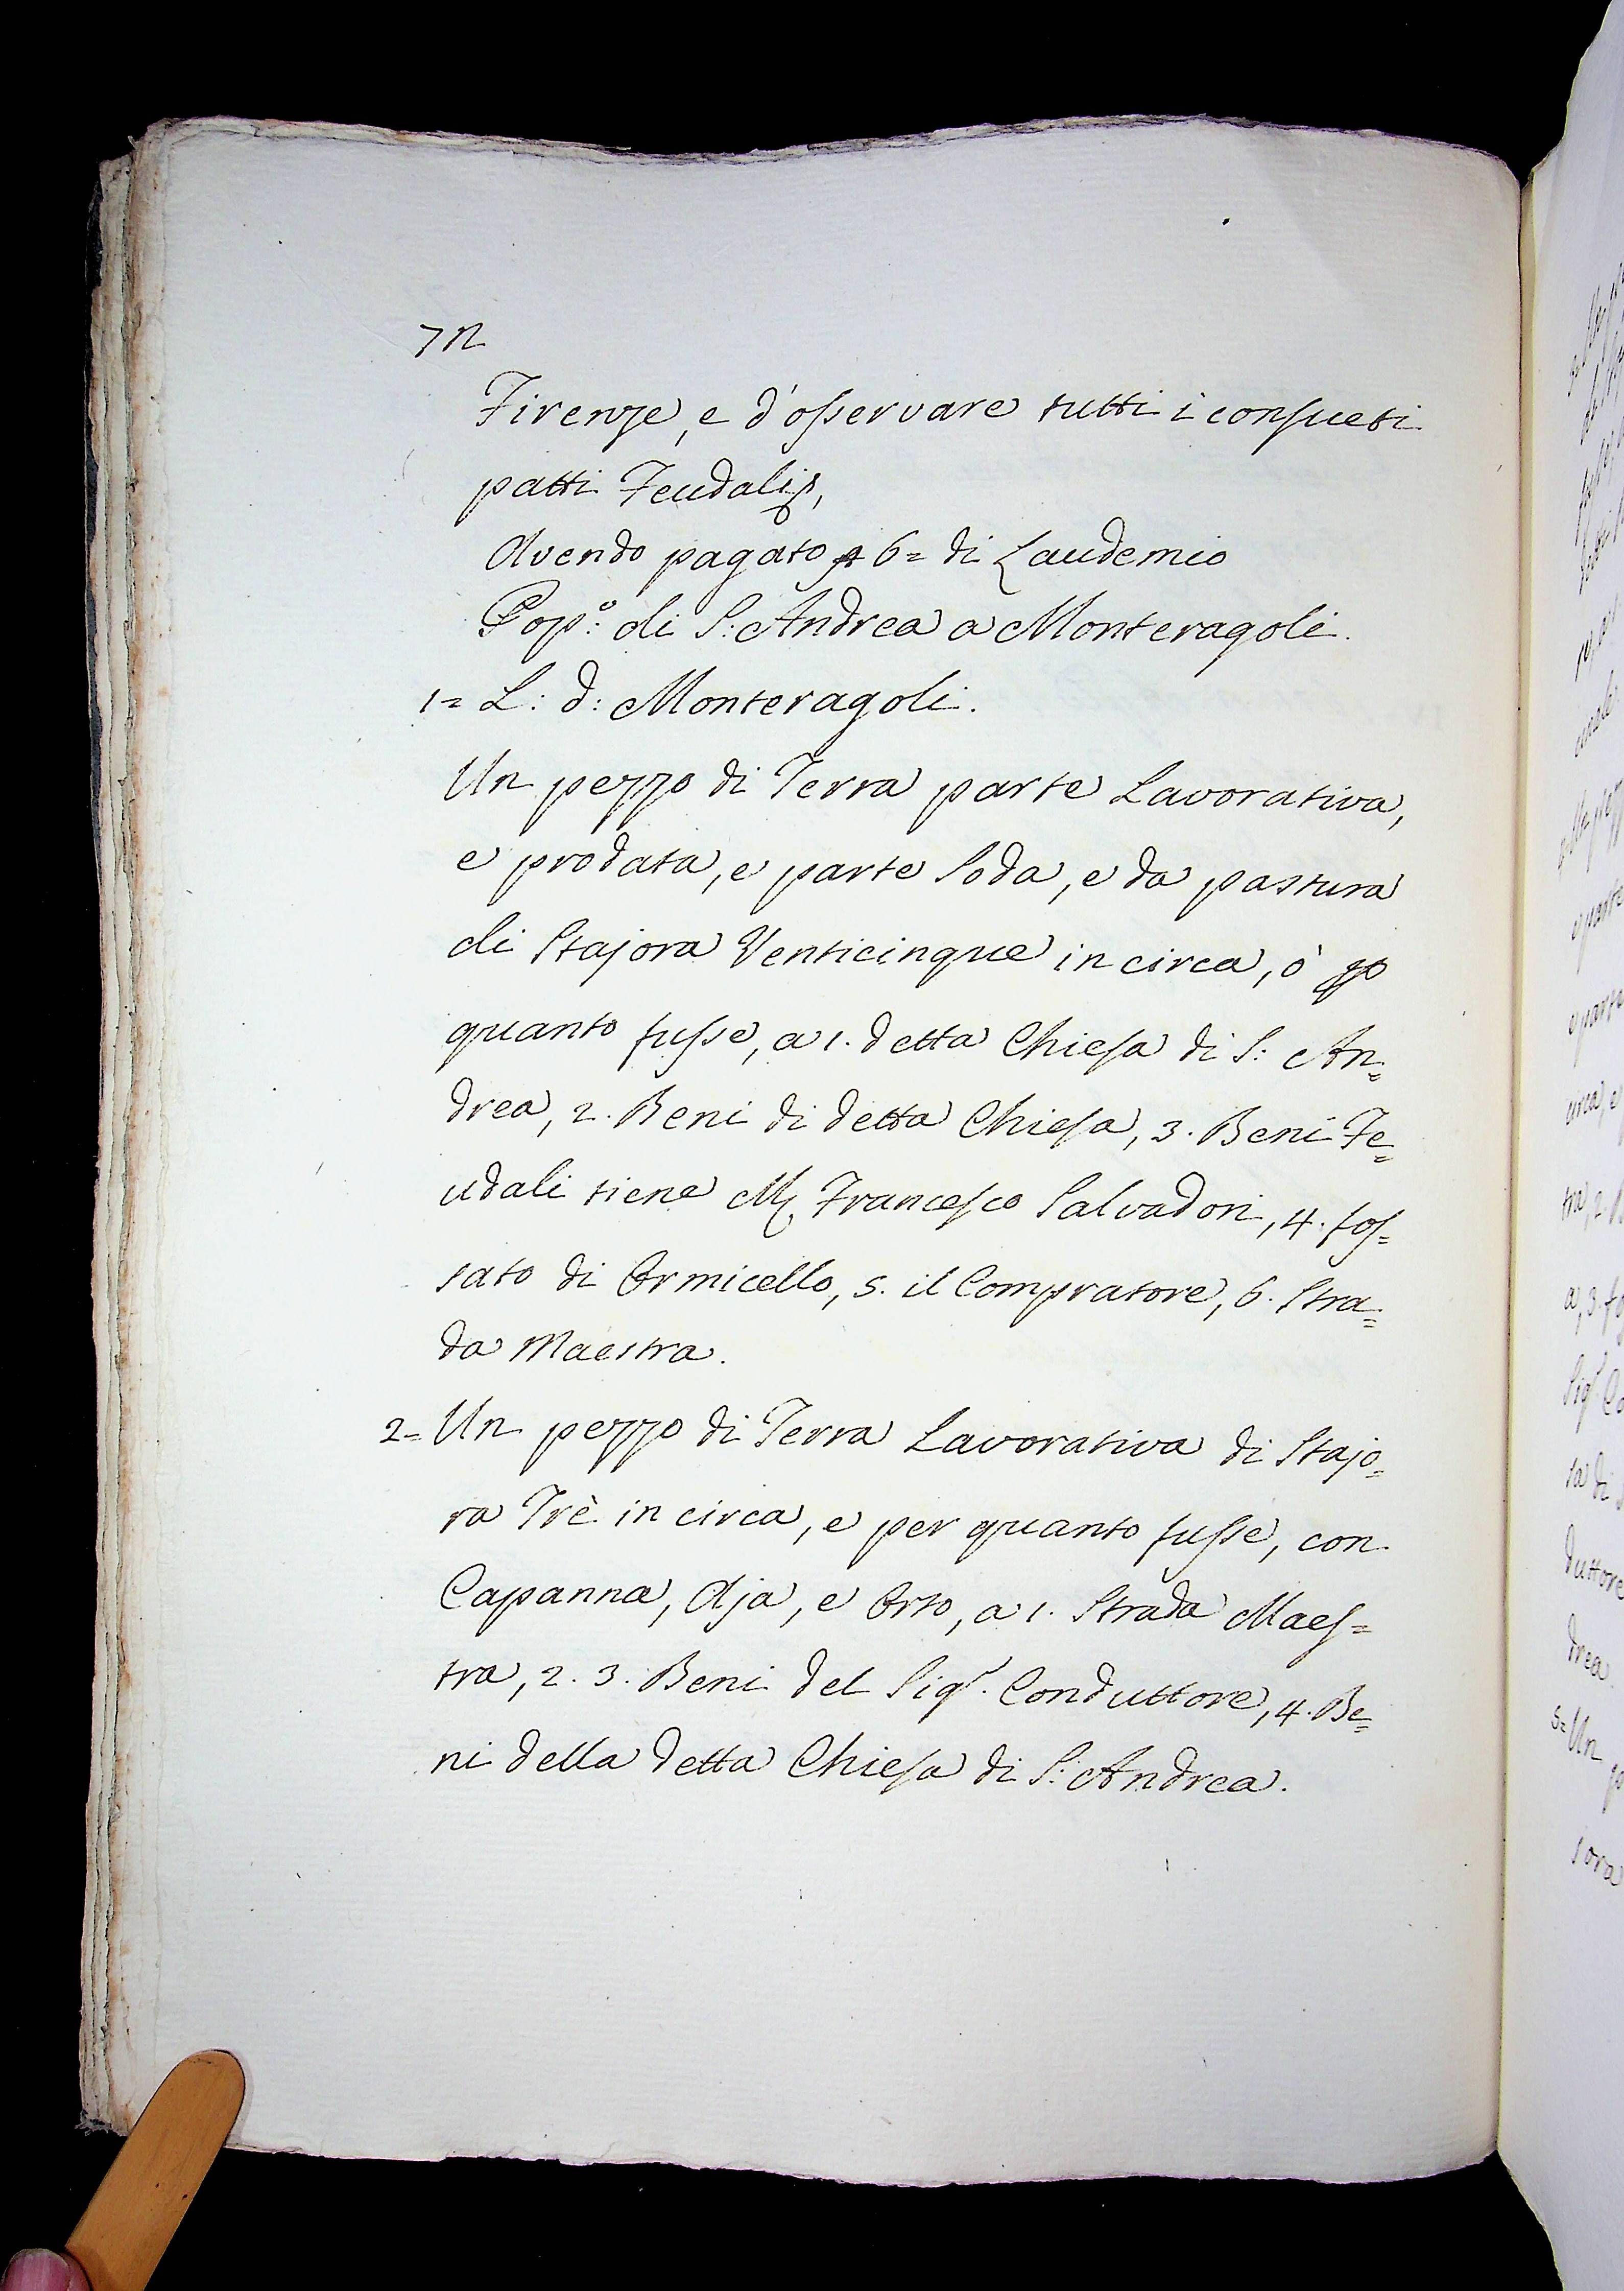 72
Firenze, e d'osservare tutti i consueti
patti Feudali,
Avendo pagato 6= di Laudemio
Pop.º di S: Andrea a Monteragoli.
1= L: d: Monteragoli.
Un pezzo di Terra parte Lavorativa,
e prodata, e parte Soda, e da pastura
di Stajora Venticinque in circa, ò p
quanto fusse, a 1. detta Chiesa di S: An=
drea, 2. Beni di detta Chiesa, 3. Beni Fe=
udali tiene M. Francesco Salvadori, 4. fos=
sato di Ormicello, 5. il Compratore, 6. Stra=
da Maestra.
2= Un pezzo di Terra Lavorativa di Stajo=
ra Trè in circa, e per quanto fusse, con
Capanna, Aja, e Orto, a 1. Strada Maes=
tra, 2. 3. Beni del Sigr. Conduttore, 4. Be=
ni della detta Chiesa di S: Andrea.